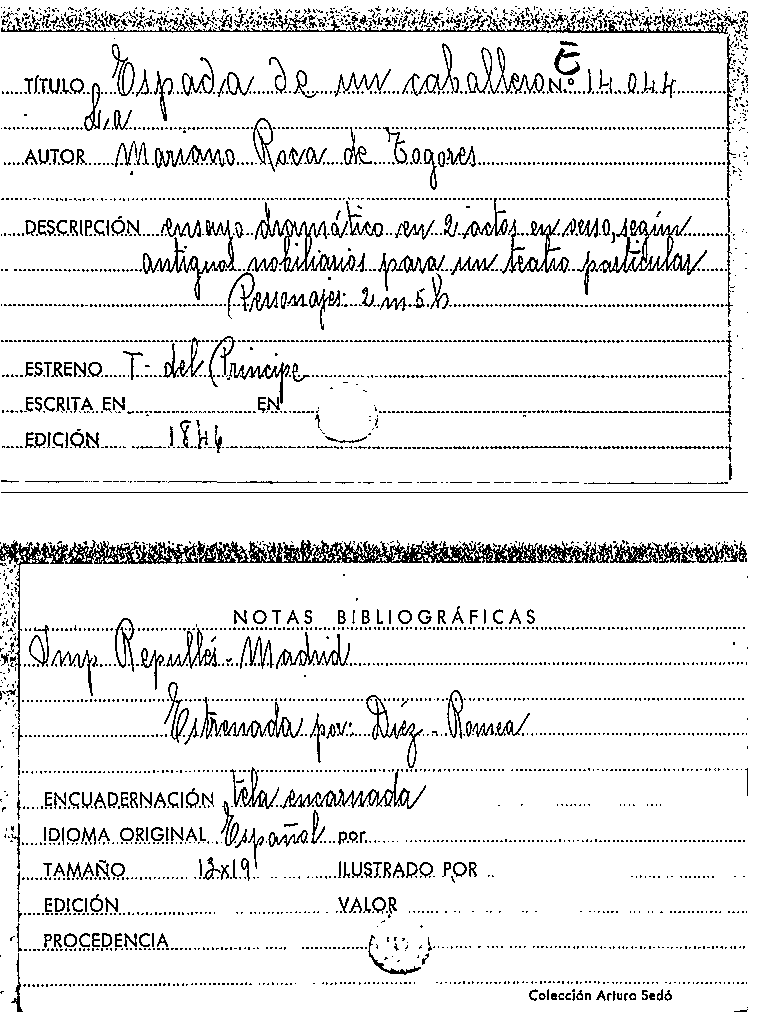 TÍTULO Espada de un caballero N.º 14.044
E
La
AUTOR Mariano Roca de Togores
DESCRIPCIÓN ensayo dramático en 2 actos en verso, según
nobiliarios para un teatro particular
Personajes: 2 m 5 h
ESTRENO T. del Principe
ESCRITA EN EN
EDICIÓN 1846
NOTAS BIBLIOGRÁFICAS
Imp. Repullés - Madrid
Estrenada por: Díez - Romea
ENCUADERNACIÓN tela encarnada
IDIOMA ORIGINAL Español por
TAMAÑO 13x19 ILUSTRADO POR
EDICIÓN VALOR
PROCEDENCIA
Colección Arturo Sedó